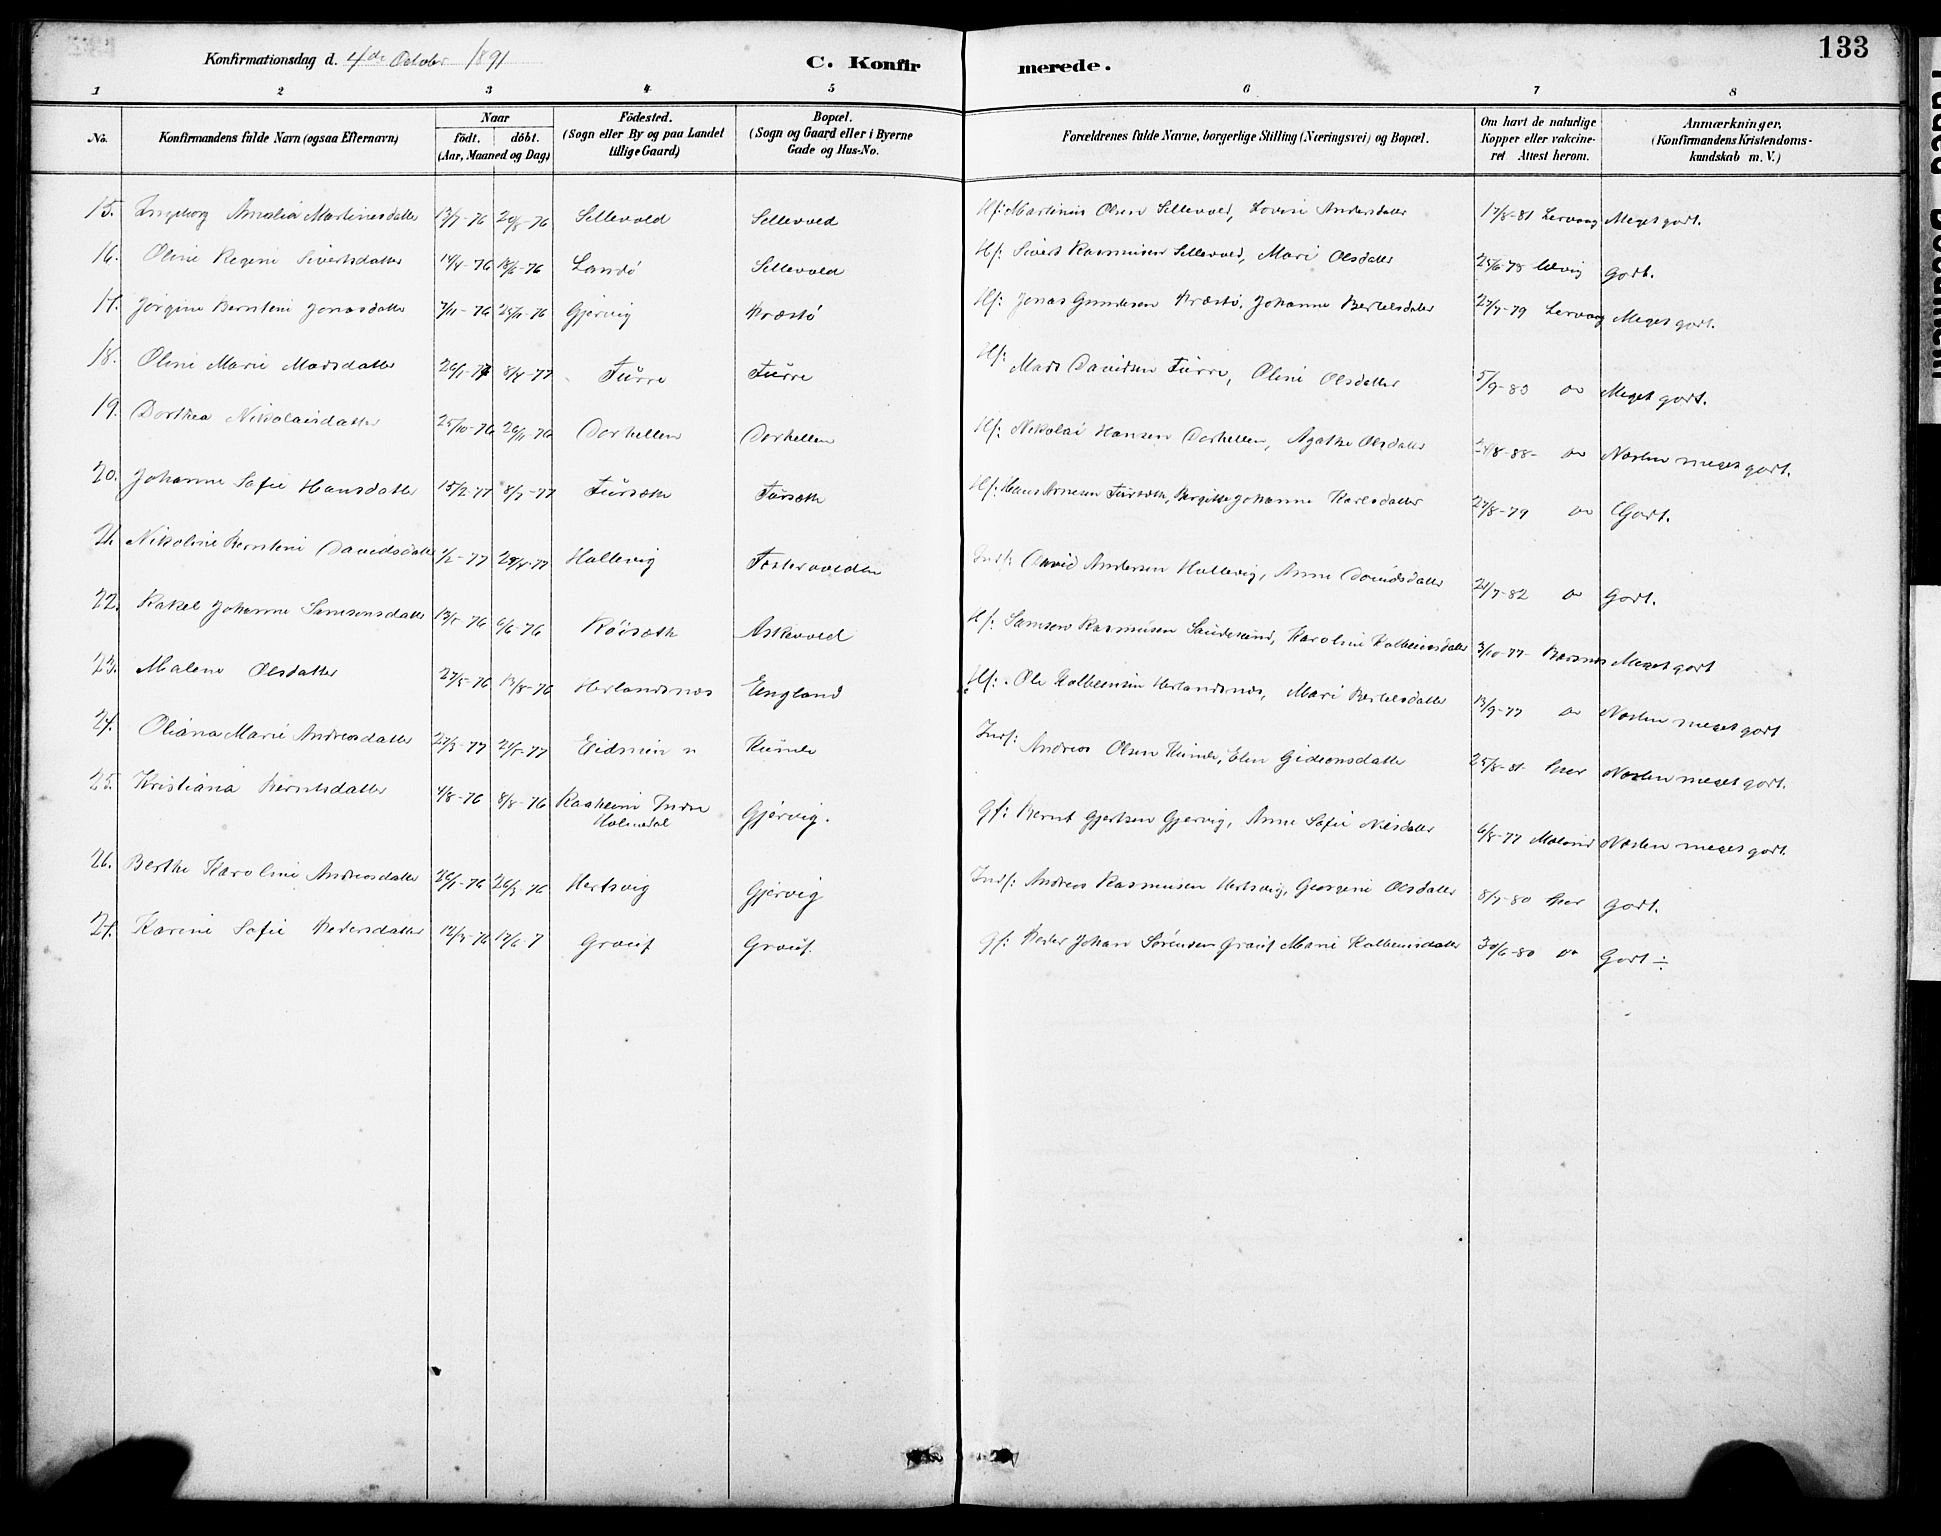 133
Konfirmationsdag d. 4de October 1891
C. Konfirmerede.
1 2 3 4 5 6 7 8
No. Konfirmandens fulde Navn (ogsaa Efternavn) Naar født. døbt. (Aar, Maaned og Dag) Födested. (Sogn eller By og paa Landet tillige Gaard) Bopæl. (Sogn og Gaard eller i Byerne Gade og Hus-No. Forældrenes fulde Navne, borgerlige Stilling (Næringsvei) og Bopæl. Om havt de naturlige Kopper eller vakcineret Attest herom. Anmærkninger. (Konfirmandens Kristendomskundskab m. V.)
15. Ingeborg Amalia Martinusdatter 13/7-76 20/8-76 Sellevold Sellevold Hf: Martinus Olsen Sellevold, Lovise Andersdatter 17/8-81 Lervaag Meget godt.
16. Oline Regine Sivertsdatter 14/4-76 18/6-76 Landö Sellevold Hf: Sivert Rasmussen Sellevold, Mari Olsdatter 25/6-78 Godt.
17. Jörgine Berntine Jonasdatter 7/11-76 25/11-76 Gjervig Præstö Hf: Jonas Gundesen Præstö, Johanne Bertelsdatter 27/7-79 Lervaag Meget godt.
18. Oline Marie Madsdatter 26/1-77 8/4-77 Fürre Fürre Hf: Mads Davidsen Fürre, Oline Olsdatter 5/9-80 do Meget godt.
19. Dorthea Nikolaisdatter 25/10-76 26/11-76 Dorhellen Dorhellen Hf: Nikolai Hansen Dorhellen, Agathe Olsdatter 8-88- do Næsten meget godt.
20. Johanne Sofie Hansdatter 15/2-77 8/7-77 Fürsæth Fürsæth Hf: Hans Arnesen Fürsæth, Birgitte Johanne Karlsdatter 27/8-79 do Godt.
21. Nikoline Berntine Davidsdatter 1/2-77 29/4-77 Hollevig Hf: David Andersen Hollevig, Anne Davidsdatter 21/7-82 do Godt.
22. Rakel Johanne Samsonsdatter 13/5-76 6/6-76 Röisæth Askevold Hf: Samson Rasmusen Sandesund, Karoline Kolbeinsdatter 3/10-77 Meget godt
23. Malene Olsdatter 27/5-76 13/8-76 Herlandsnæs England Hf: Ole Kolbeinsen Herlandsnæs, Mari Bertelsdatter 13/9-77 do Næsten meget godt
24. Oliana Marie Andreasdatter 27/3-77 21/5-77 Künde Indf: Andreas Olsen Künde, Elen Gideonsdatter 25/8-81 Næsten meget godt.
25. Kristiana Berntsdatter 4/8-76 8/8-76 Raaheim Indre Holmedal Gjervig. Gf: Bernt Gjertsen Gjervig, Anne Sofie Nilsdatter 6/8-77 Næsten meget godt.
26. Berthe Karoline Andreasdatter 26/1-76 26/3-76 Hertsvig Gjervig Indf: Andreas Rasmusen Hertsvig, Georgine Olsdatter 8/7-80 Godt.
27. Karine Sofie Pedersdatter 12/5-76 17/6-7 Graüf Graüf. Gf: Peder Johan Sørensen Graüf Marie Kolbeinsdatter 30/6-80 do Godt ÷